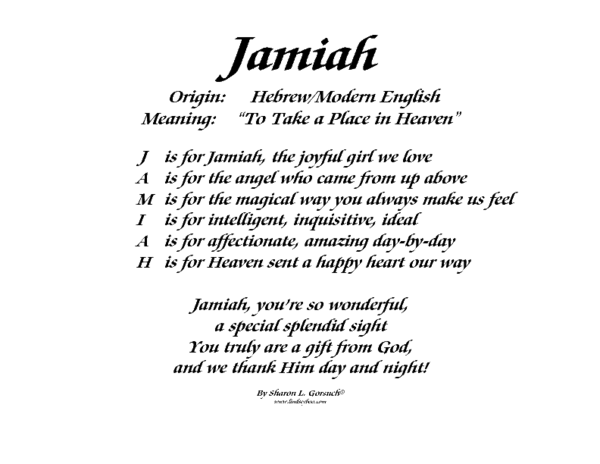 Jamiah
Origin: Hebrew/Modern English
Meaning: "To Take a Place in Heaven"
J is for Jamiah, the joyful girl we love
A is for the angel who came from up above
M is for the magical way you always make us feel
I is for intelligent, inquisitive, ideal
A is for affectionate, amazing day-by-day
H is for Heaven sent a happy heart our way
Jamiah, you're so wonderful,
a special splendid sight
You truly are a gift from God,
and we thank Him day and night!
By Sharon L. Gorsuch©